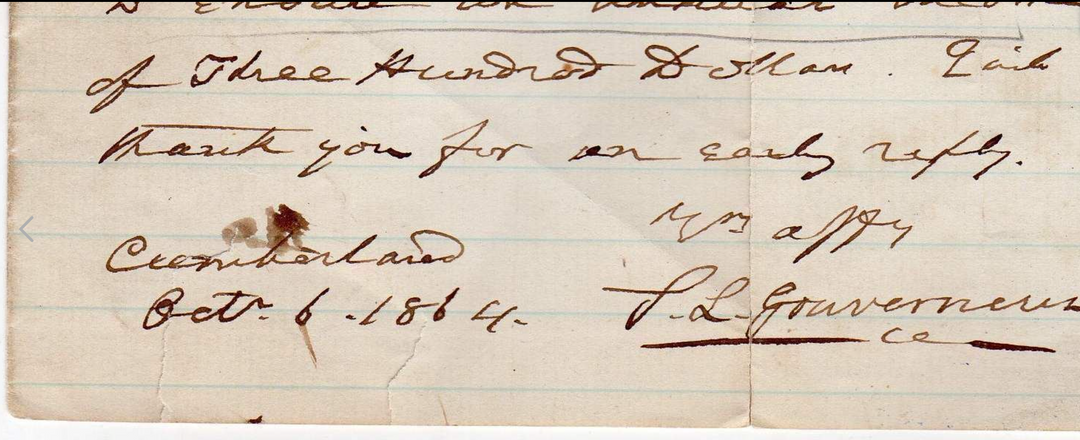 of Three Hundred Dollars. I will
thank you for an early reply.
Yrs affy
Cumberland
Octr. 6. 1864.
S. L. Gouverneur